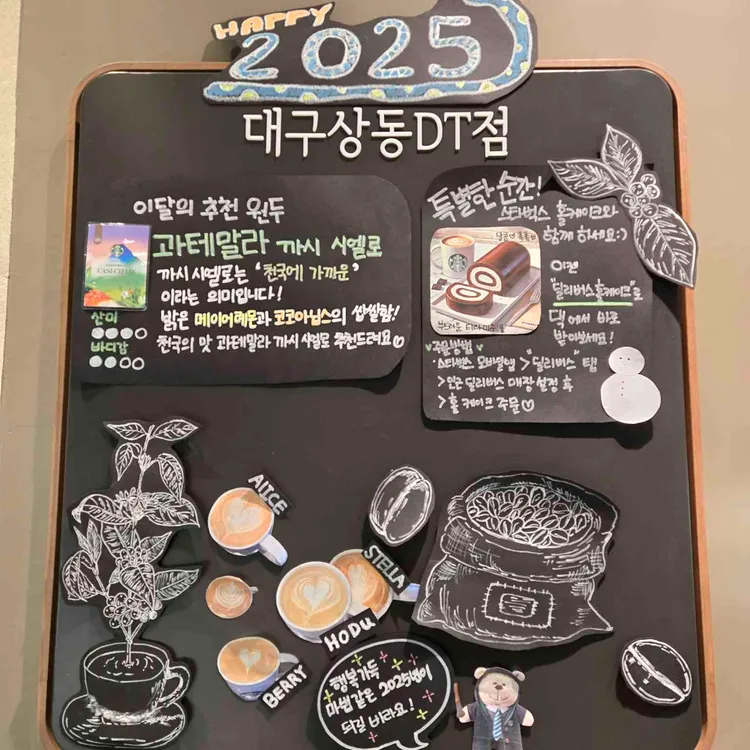 HAPPY
2025
대구상동DT점
이달의 추천 원두
과테말라 까시 시엘로
까시 시엘로는 '천국에 가까운'
이라는 의미입니다!
밝은 메이어레몬과 코코아닙스의 섬세함!
천국의 맛 과테말라 까시 시엘로 추천드려요♡
CASI CIELO
산미
바디감
특별한 순간!
스타벅스 홀케이크와
함께 하세요:)
부드러운 티라미수 롤
이젠
"딜리버스홀케이크"로
댁에서 바로
받아보세요!
주문방법
·스타벅스 모바일앱 > "딜리버스" 탭
> 인근 딜리버스 매장 설정 후
> 홀 케이크 주문♡
AlICE
STELLA
HODU
BERRY
행복가득
마법같은 2025년이
되길 바라요!